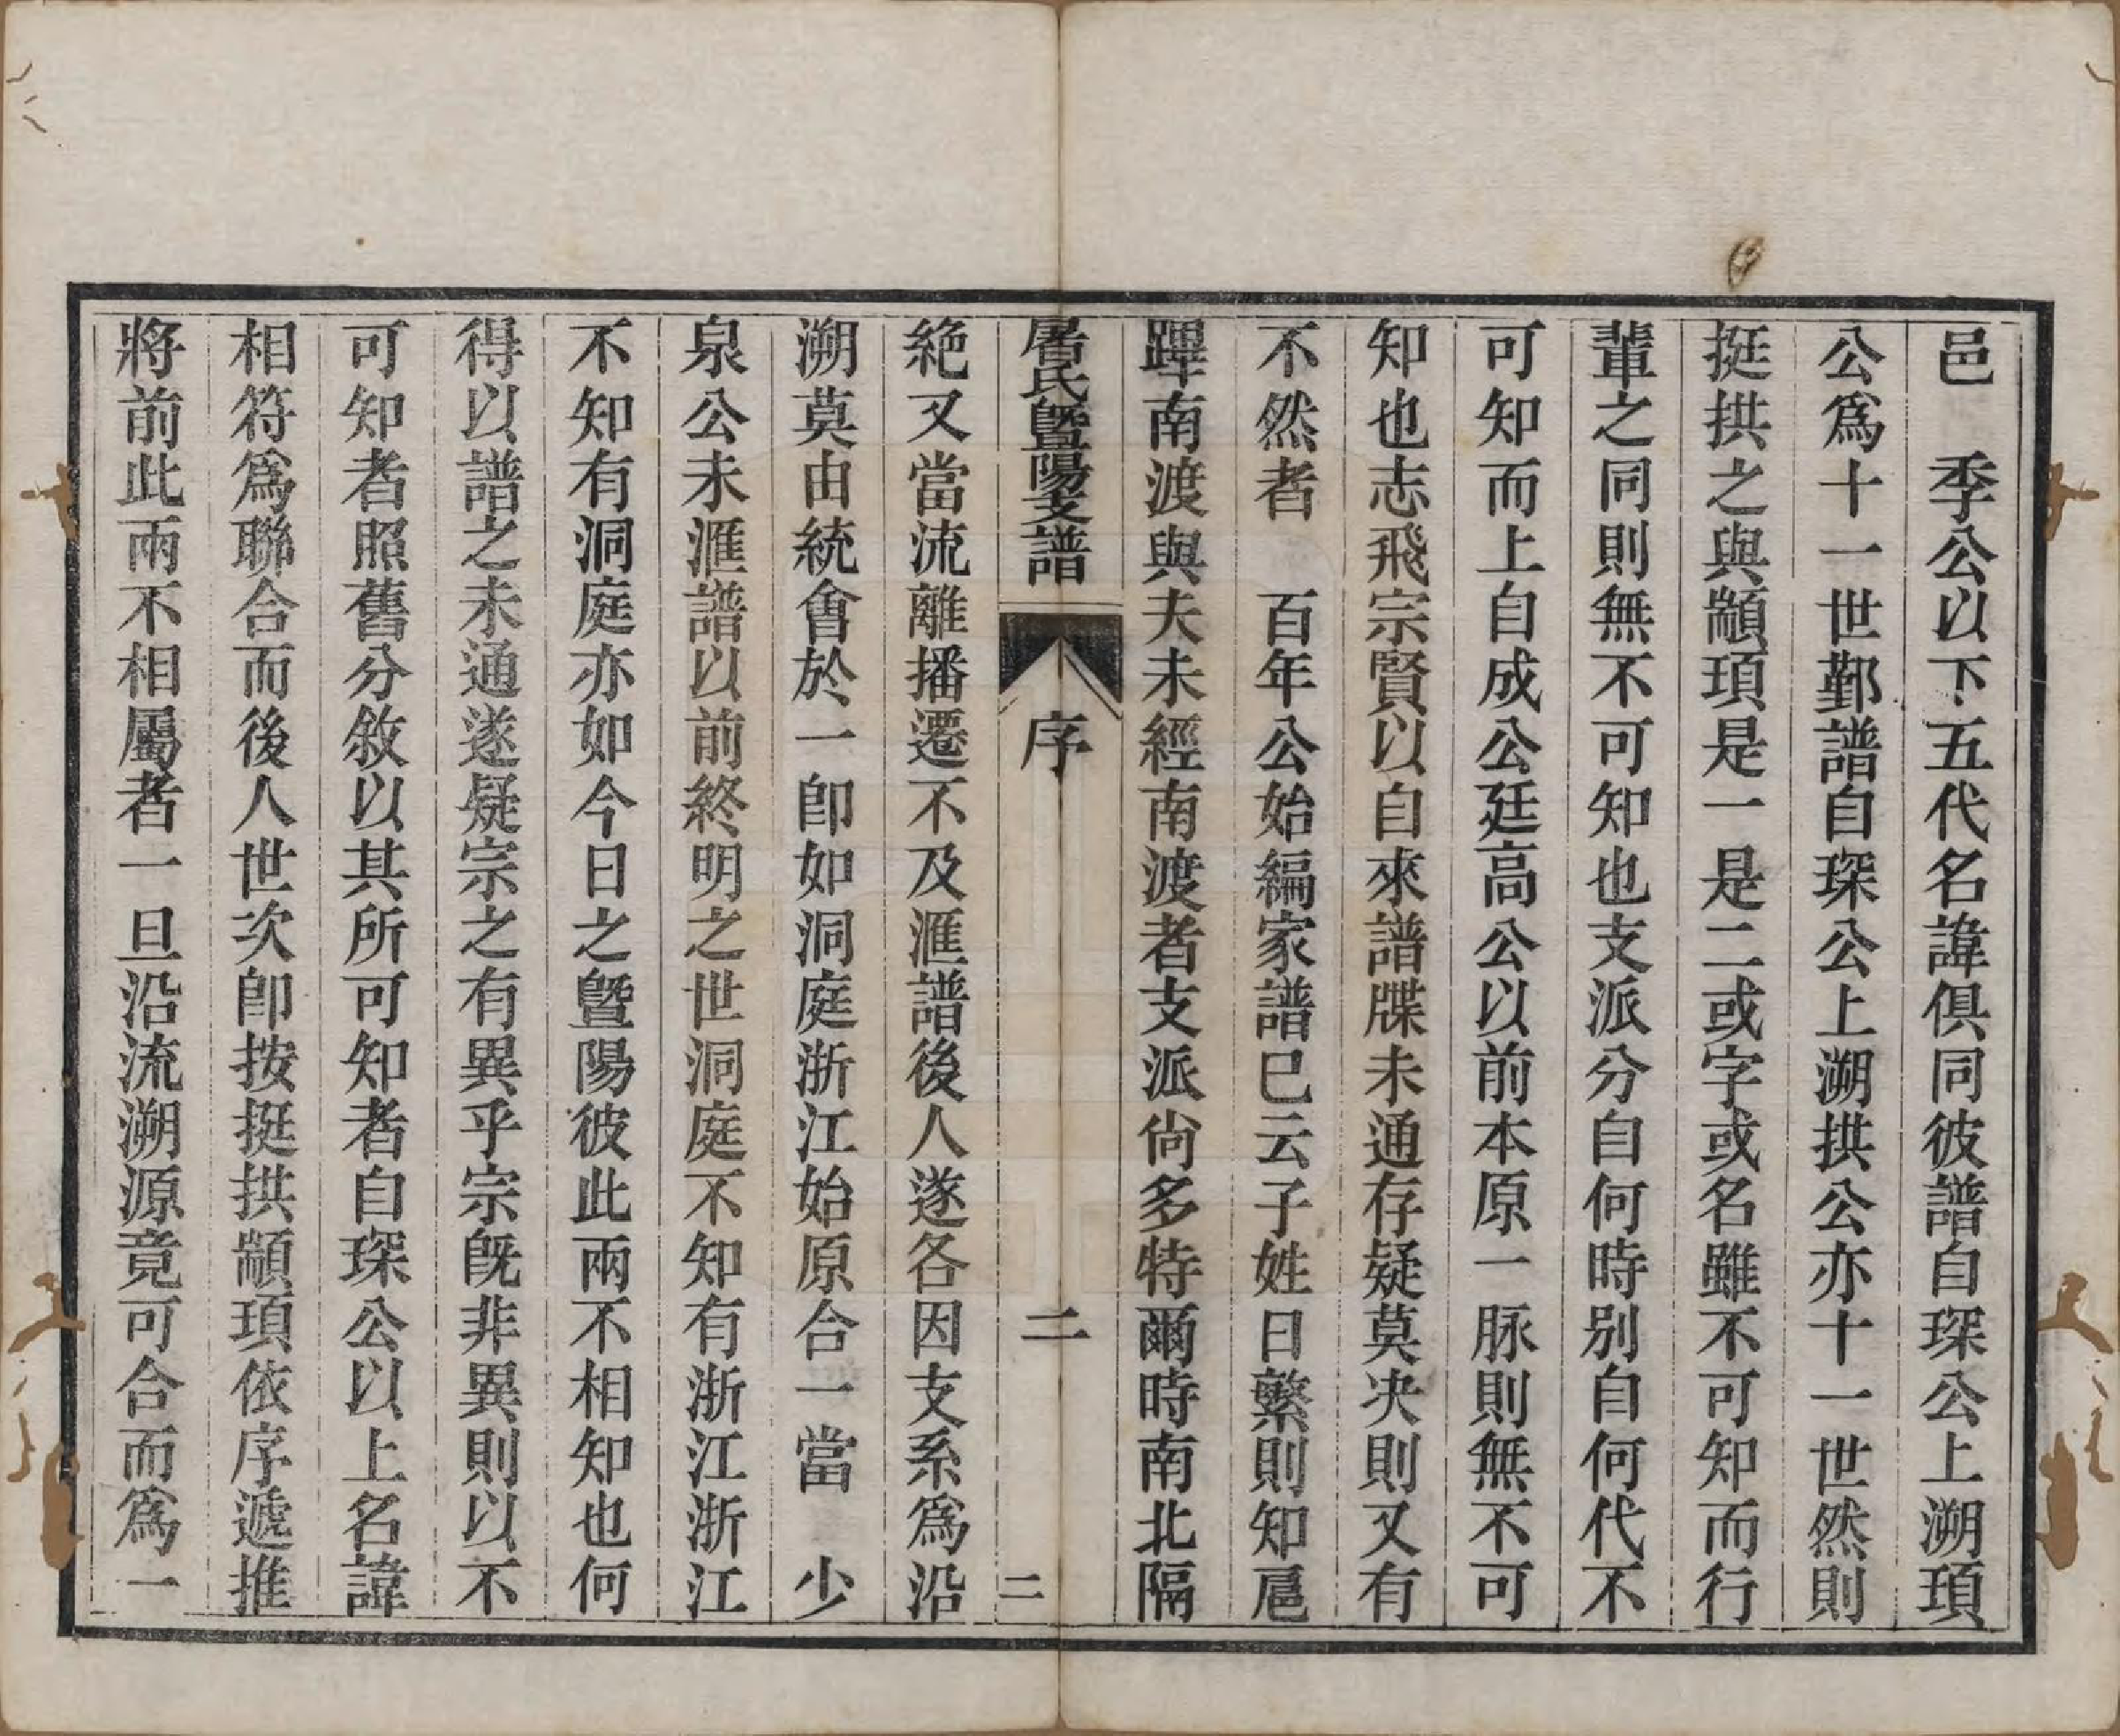 邑　季公以下五代名諱俱同彼譜自琛公上溯頊
公爲十一世鄞譜自琛公上溯拱公亦十一世然則
挺拱之與顓頊是一是二或字或名雖不可知而行
輩之同則無不可知也支派分自何時別自何代不
可知而上自成公廷高公以前本原一脉則無不可
知也志飛宗賢以自來譜牒未通存疑莫决則又有
不然者　百年公始編家譜已云子姓日蘩則知扈
蹕南渡與夫未經南渡者支派尙多特爾時南北隔
屠氏暨陽支譜　序　二　二
絶又當流離播遷不及滙譜後人遂各因支系爲沿
溯莫由統會於一卽如洞庭浙江始原合一當　少
泉公未滙譜以前終明之世洞庭不知有浙江浙江
不知有洞庭亦如今日之暨陽彼此兩不相知也何
得以譜之未通遂疑宗之有異乎宗旣非異則以不
可知者照舊分敘以其所可知者自琛公以上名諱
相符爲聯合而後人世次卽按挺拱顓頊依序遞推
將前此兩不相屬者一旦沿流溯源竟可合而爲一